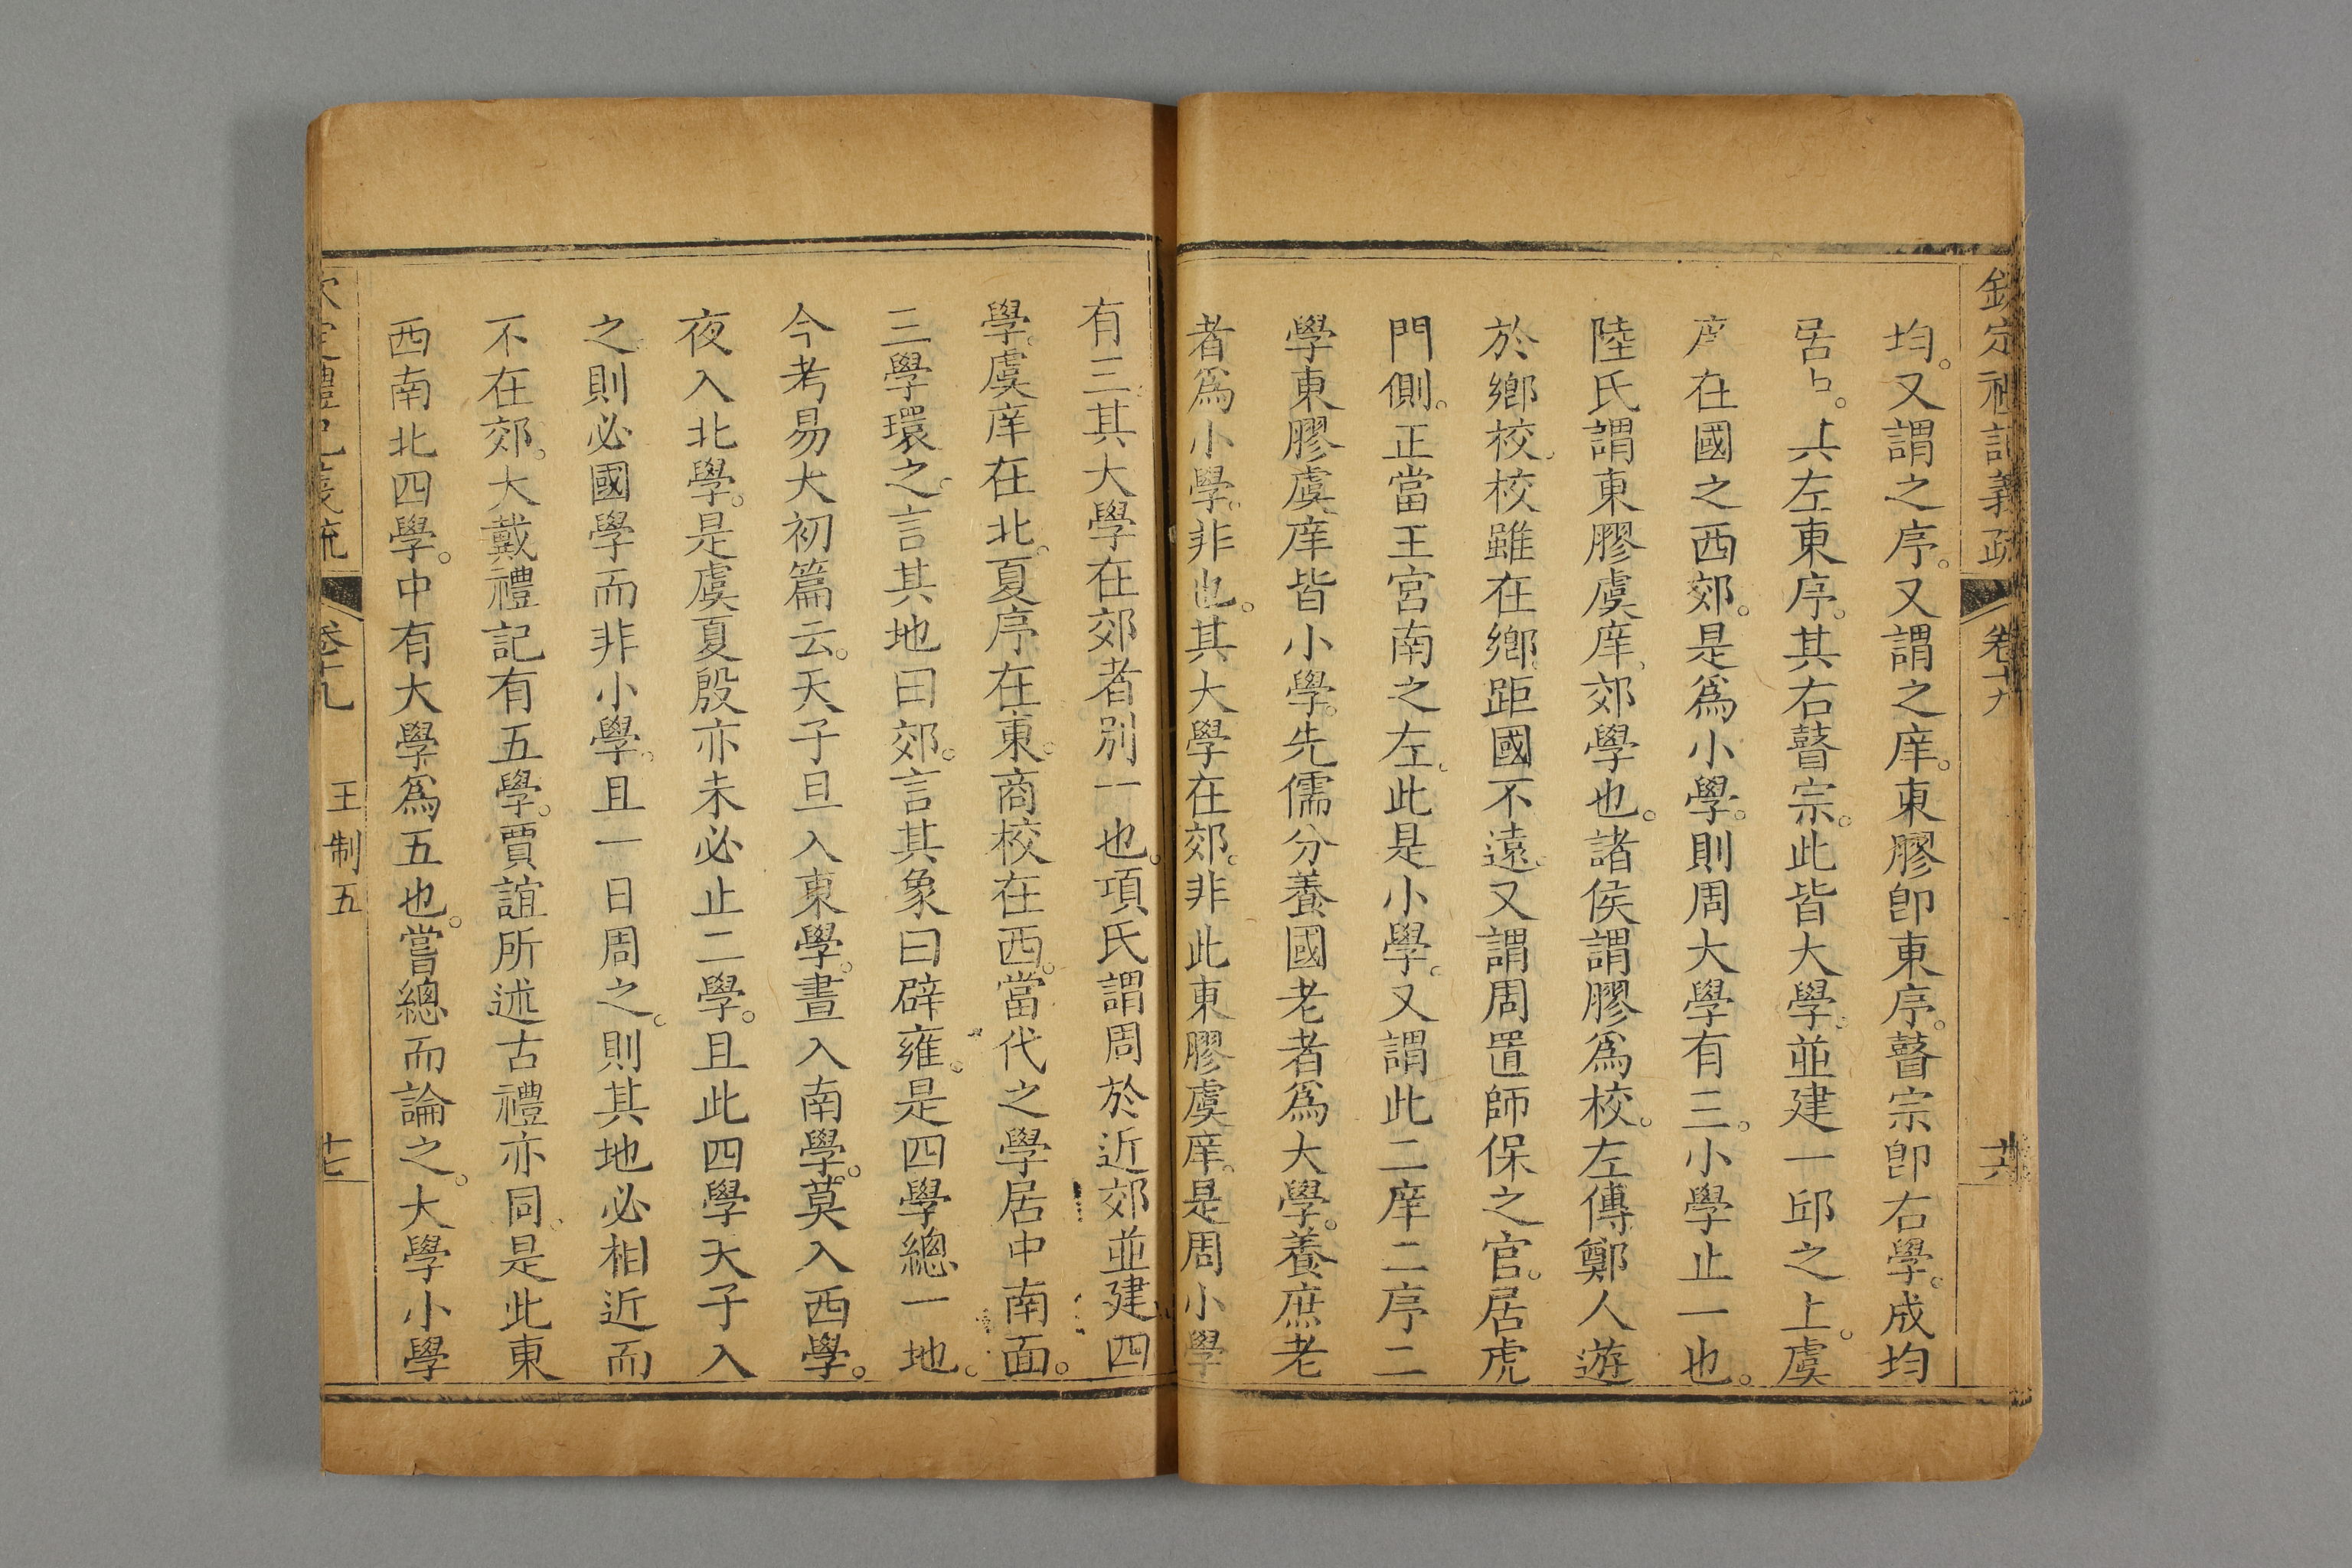 欽定禮記義疏 卷十九 十六
均。又謂之序。又謂之庠。東膠卽東序。瞽宗卽右學。成均
居中。其左東序。其右瞽宗。此皆大學。並建一邱之上。虞
庠在國之西郊。是爲小學。則周大學有三。小學止一也。
陸氏謂東膠虞庠、郊學也。諸侯謂膠爲校。左傳鄭人遊
於鄉校、校雖在鄉。距國不遠。又謂周置師保之官。居虎
門側。正當王宮南之左、此是小學。又謂此二庠二序二
學東膠虞庠皆小學。先儒分養國老者爲大學。養庶老
者爲小學。非也。其大學在郊。非此東膠虞庠。是周小學
有三其大學在郊者別一也。項氏謂周於近郊並建四
學。虞庠在北。夏序在東。商校在西。當代之學居中南面。
三學環之。言其地曰郊。言其象曰辟雍。是四學總一地。
今考易大初篇云。天子旦入東學。晝入南學。莫入西學。
夜入北學。是虞夏殷亦未必止二學。且此四學天子入
之。則必國學而非小學。且一日周之。則其地必相近而
不在郊。大戴禮記有五學。賈誼所述古禮亦同。是此東
西南北四學。中有大學爲五也。嘗總而論之。大學小學
欽定禮記義疏 卷十九 王制五 十七